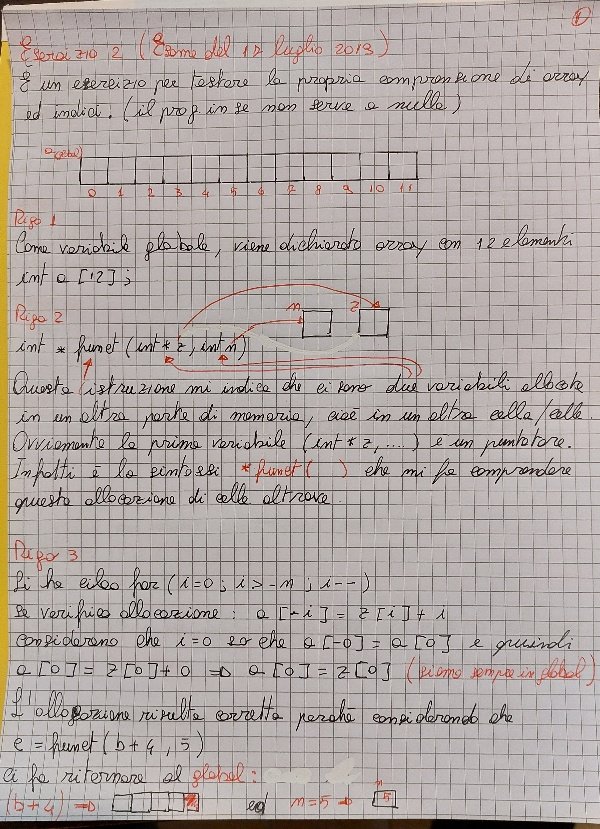 1
Esercizio 2 (Esame del 17 luglio 2013)
È un esercizio per testare la propria comprensione di array
ed indici. (il prog in se non serve a nulla)
a (global)
0 1 2 3 4 5 6 7 8 9 10 11
Rigo 1
Come variabile globale, viene dichiarato array con 12 elementi
int a [12];
Rigo 2
n z
int * funct (int * z, int n)
Questa istruzione mi indica che ci sono due variabili allocate
in un altra parte di memoria, cioè in un altra cella/celle.
Ovviamente la prima variabile (int * z, ....) è un puntatore.
Infatti è la sintassi *funct ( ) che mi fa comprendere
questa allocazione di celle altrove.
Rigo 3
Si ha ciclo for (i=0; i>-n; i--)
Se verifico allocazione: a [-i] = z[i]+i
considerano che i=0 so che a[-0] = a[0] e quindi
a[0] = z[0]+0 => a[0] = z[0] (siamo sempre in global)
L'allocazione risulta corretta perché considerando che
c = funct (b+4, 5)
ci fa ritornare al global:
(b+4) => ed n=5 => n 5